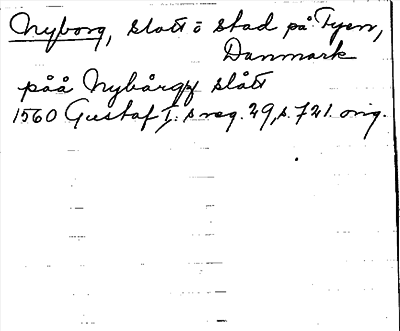 Nyborg, slott o stad på Fyen,
Danmark
påå Nybårgz slått
1560 Gustaf I:s reg. 29, s. 721. orig.